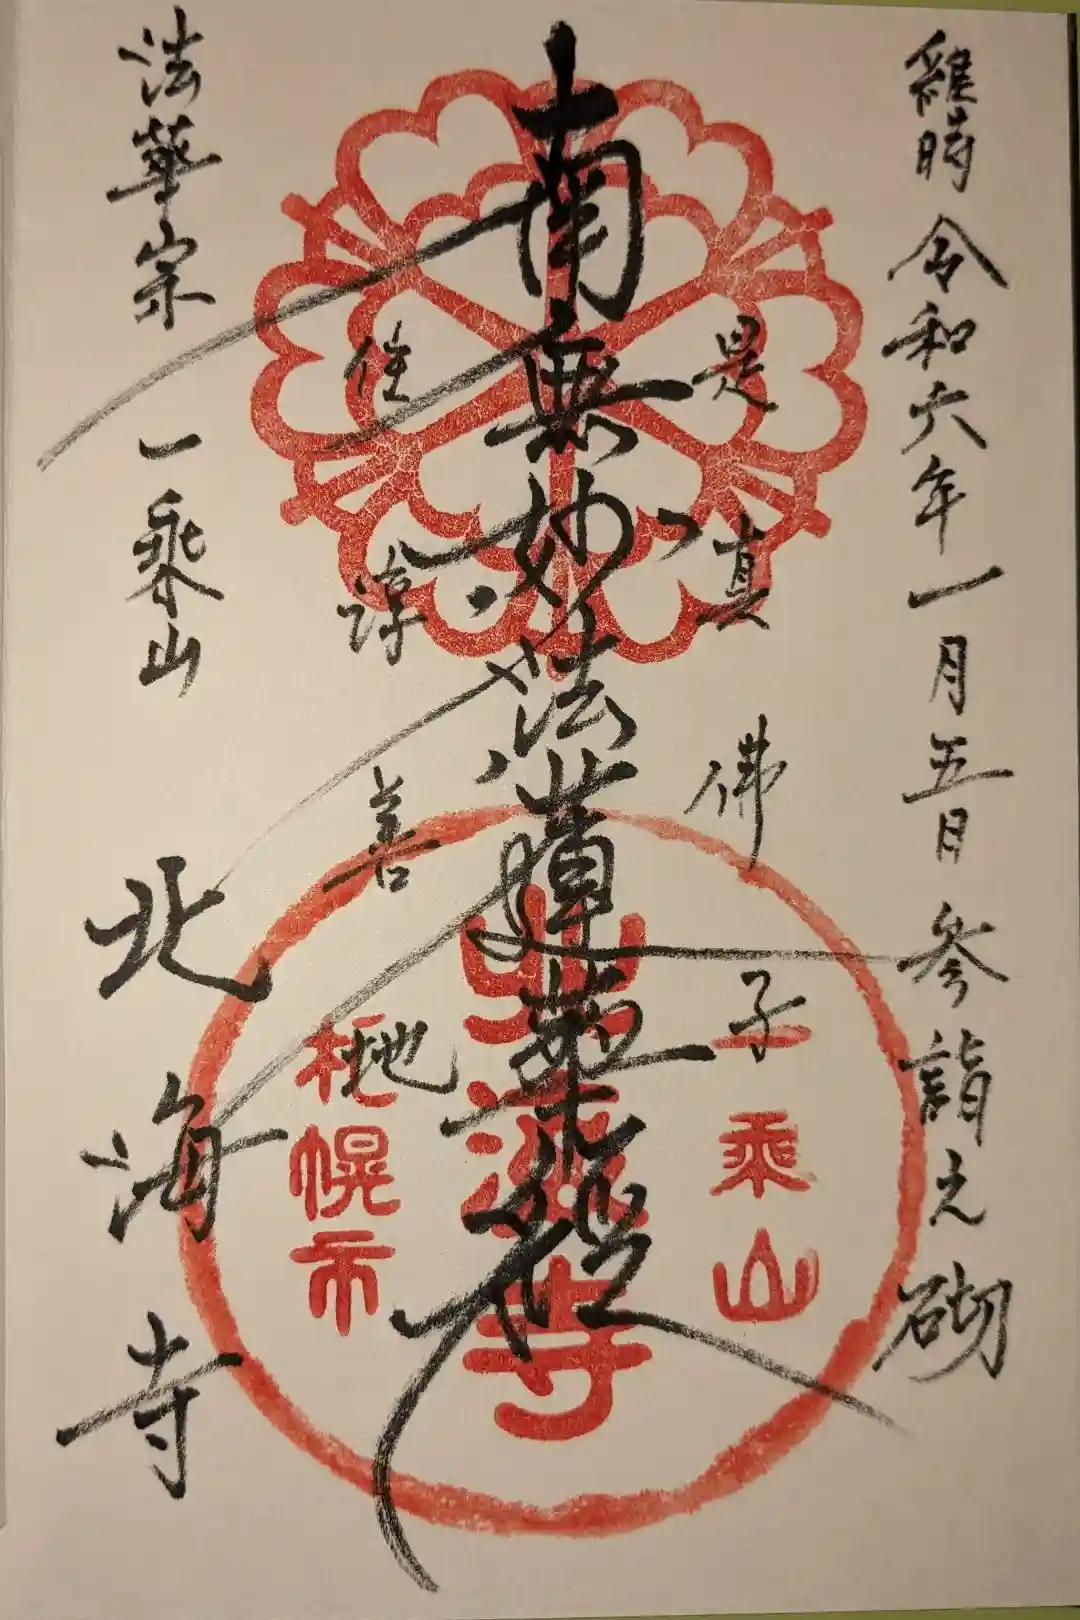 維時 令和六年一月五日 参詣之砌
是真佛子
南無妙法蓮華経
住淳善地
法華宗 一乗山 北海寺
一乗山
北海寺
札幌市